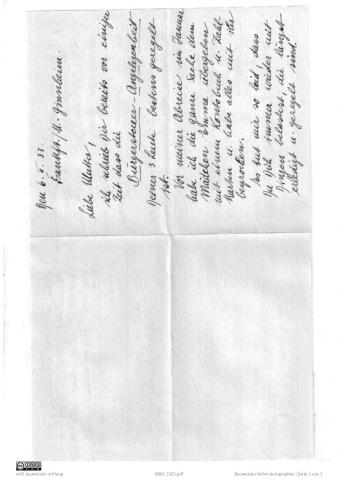 den 6.2.33
Frankft/M. Ginnheim.
Liebe Mutter,
ich schrieb Dir bereits vor einiger
Zeit dass die
Bürgersteuer-Angelegenheit
Deiner 3 bestens geregelt
ist.
Vor meiner Abreise im Januar
habe ich die ganze Sache dem
Mädchen Emma übergeben
mit einem Kontobuch u. Zahl-
karten u. habe alles mit ihr
besprochen.
Es tut mir so leid, dass
Du Dich immer wieder mit
Dingen belastest, die längst
erledigt u. geregelt sind.
willi baumeister stiftung
MBO_1303.pdf
Baumeister-Rehm Autographen | Seite 1 von 2